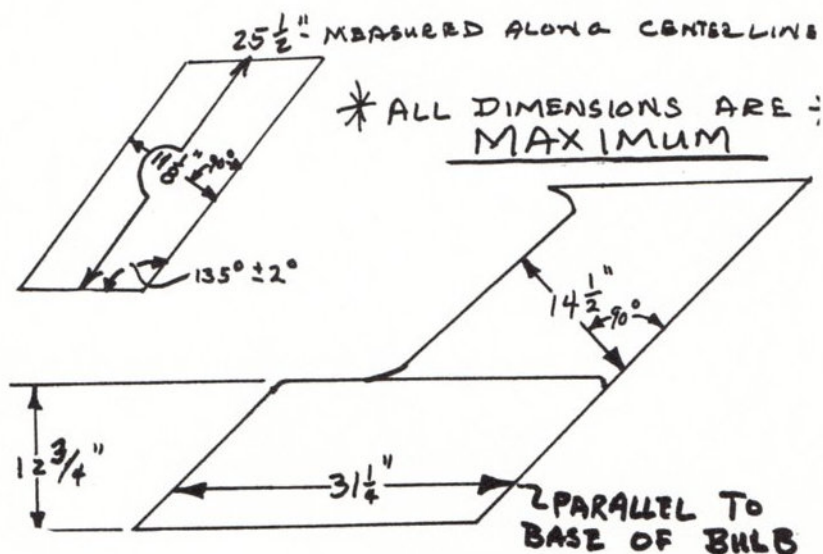 25 1/2" MEASURED ALONG CENTERLINE
* ALL DIMENSIONS ARE
MAXIMUM
90°
135° ±2°
14 1/2"
90°
12 3/4"
31 1/4"
PARALLEL TO
BASE OF BULB